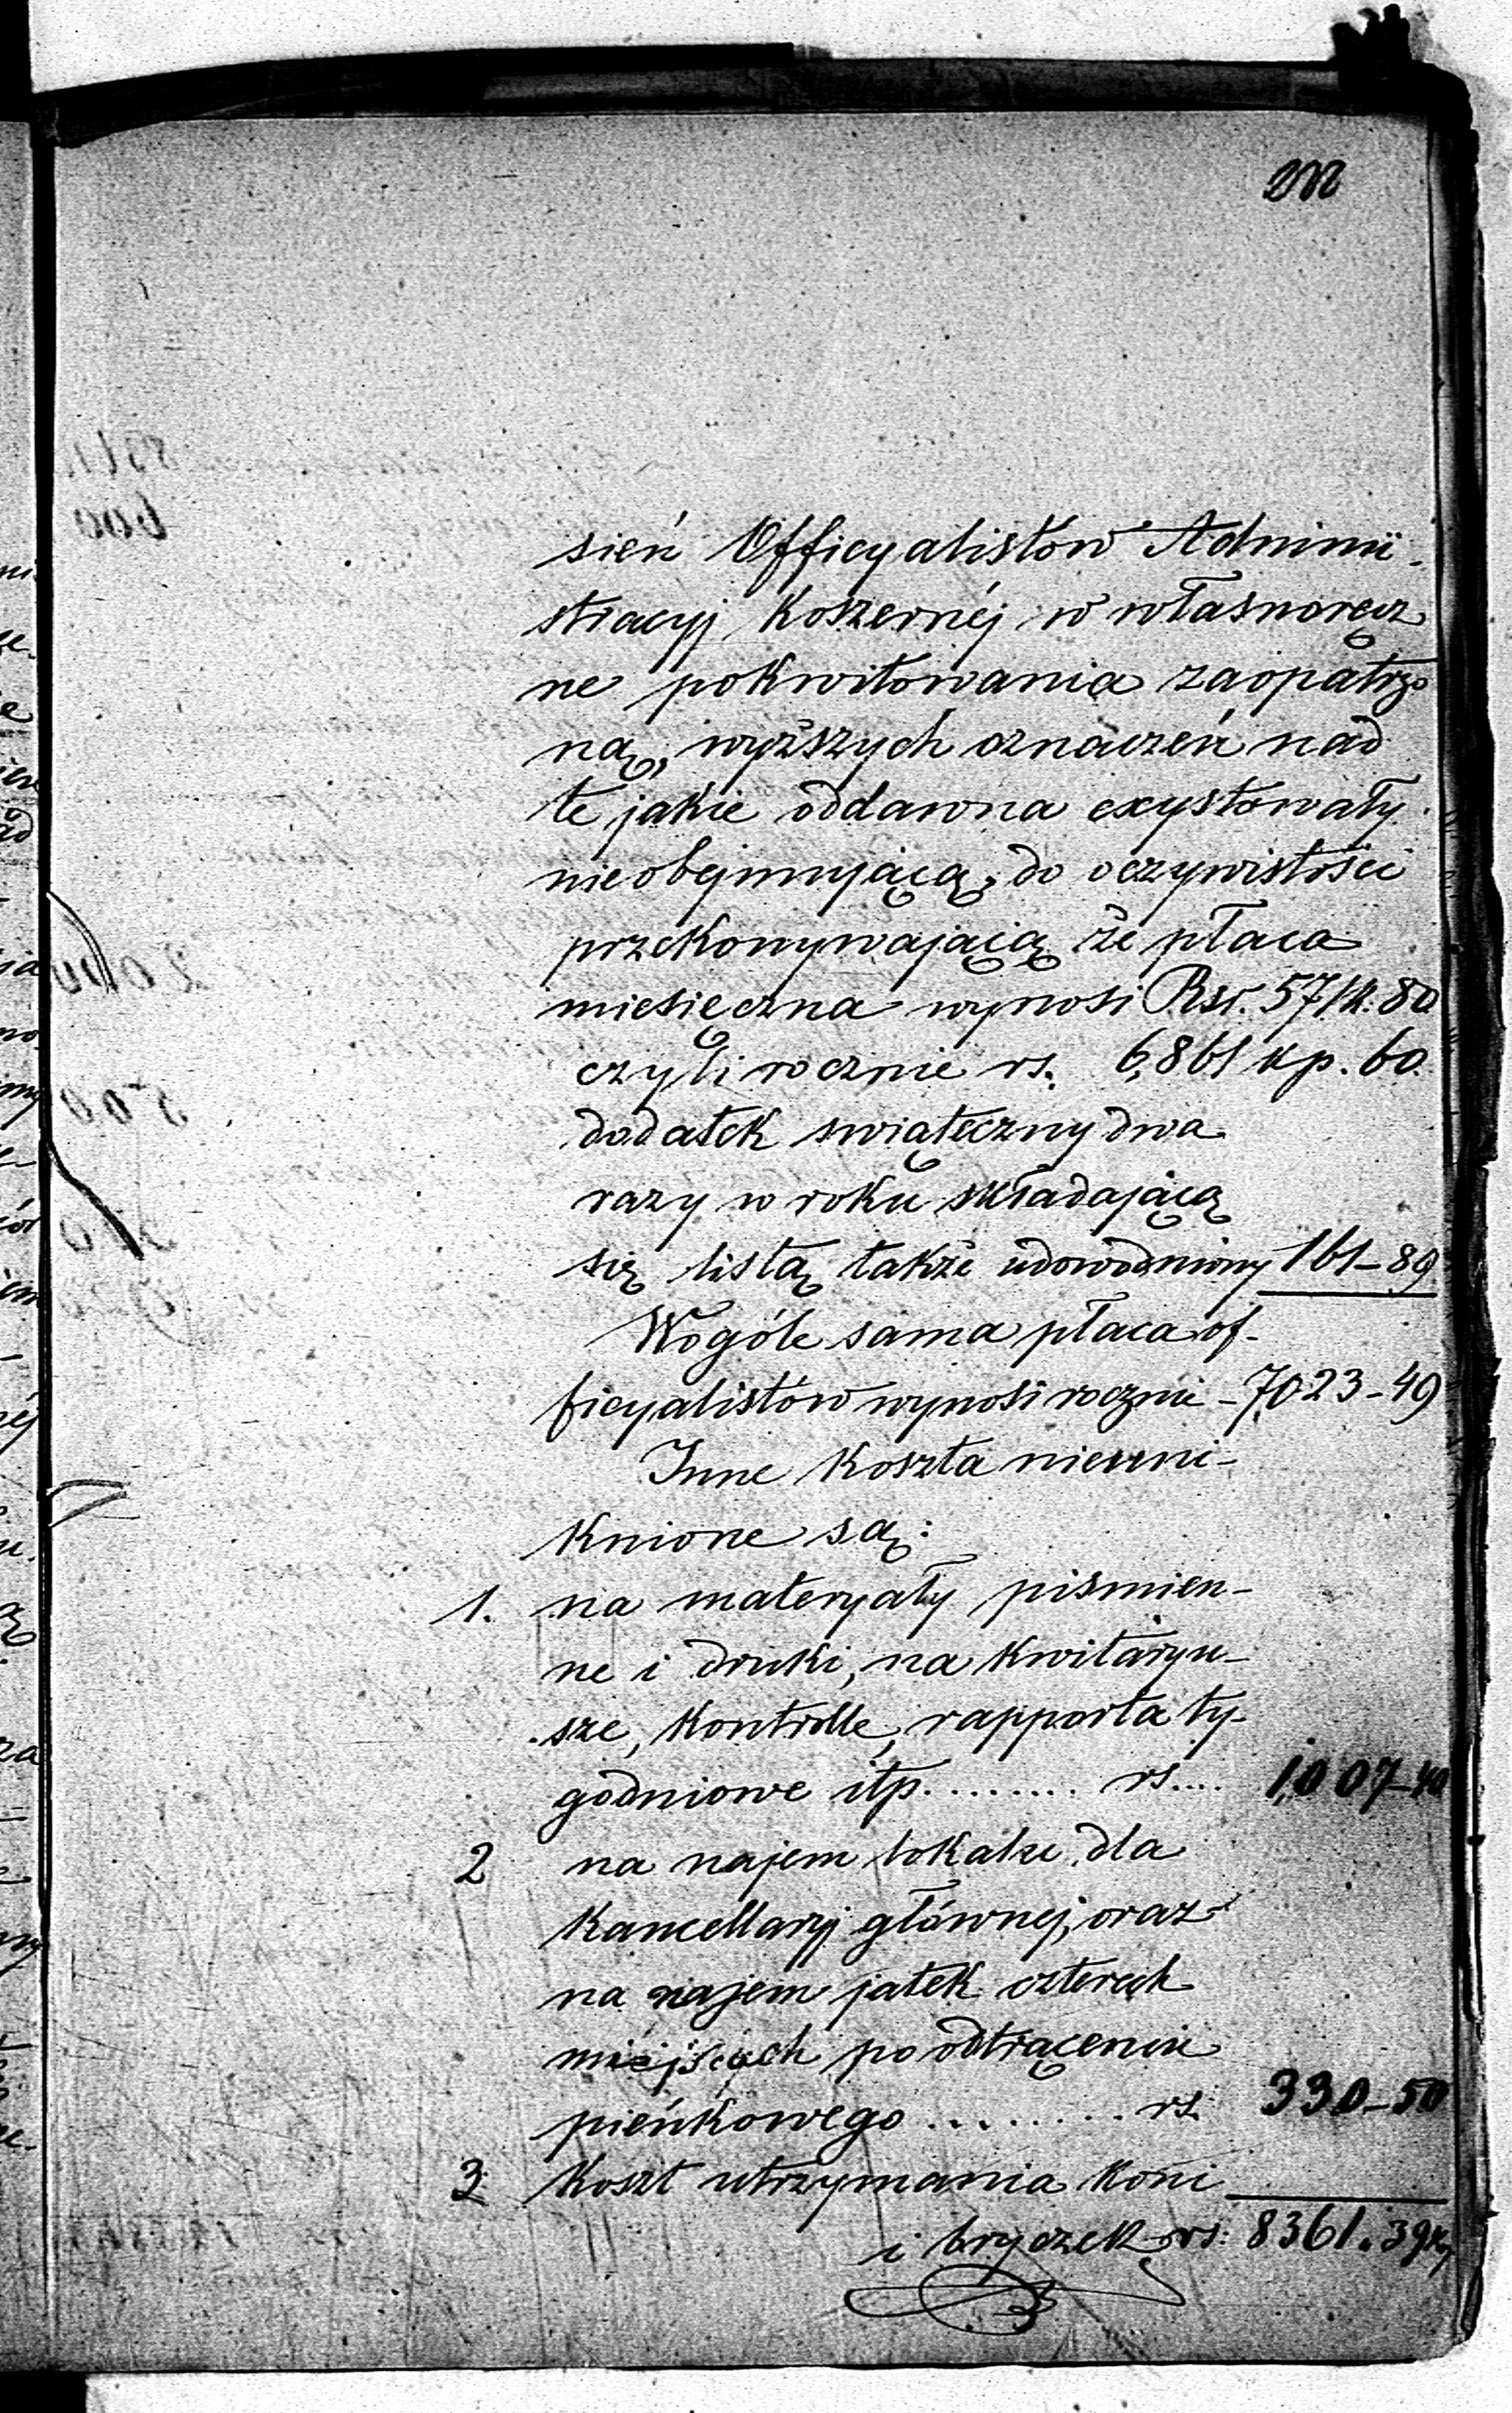 202
sień Officyalistów Admini-
stracyj Koszernéj w własnoręcz
ne pokwitowania zaopatrzo
ną, wyższych oznaczeń nad
te jakie oddawna exystowały
nieobejmującą, do oczywistości
przekonywającą że płaca
miesięczna wynosi Rsr. 571 k. 80
czyli rocznie rs. 6,861 kp. 60
dodatek swiąteczny dwa
razy w roku składającą
się listą także udowodniony 161-89
Wogóle sama płaca of-
ficyalistów wynosi rocznie - 7,023-49
Inne Koszta nieuni-
knione są:
1. na materyały piśmien-
ne i druki, na Kwitaryu-
sze, Kontrolle, rapporta ty-
godniowe itp......... rs.... 1,007-40
2 na najem lokalu dla
Kancellaryj głównej, oraz
na najem jatek czterech
miejscych po odtrąceniu
pieńkowego ........ rs. 330-50
3 Koszt utrzymania Koni
i bryczek rs: 8361. 39 k